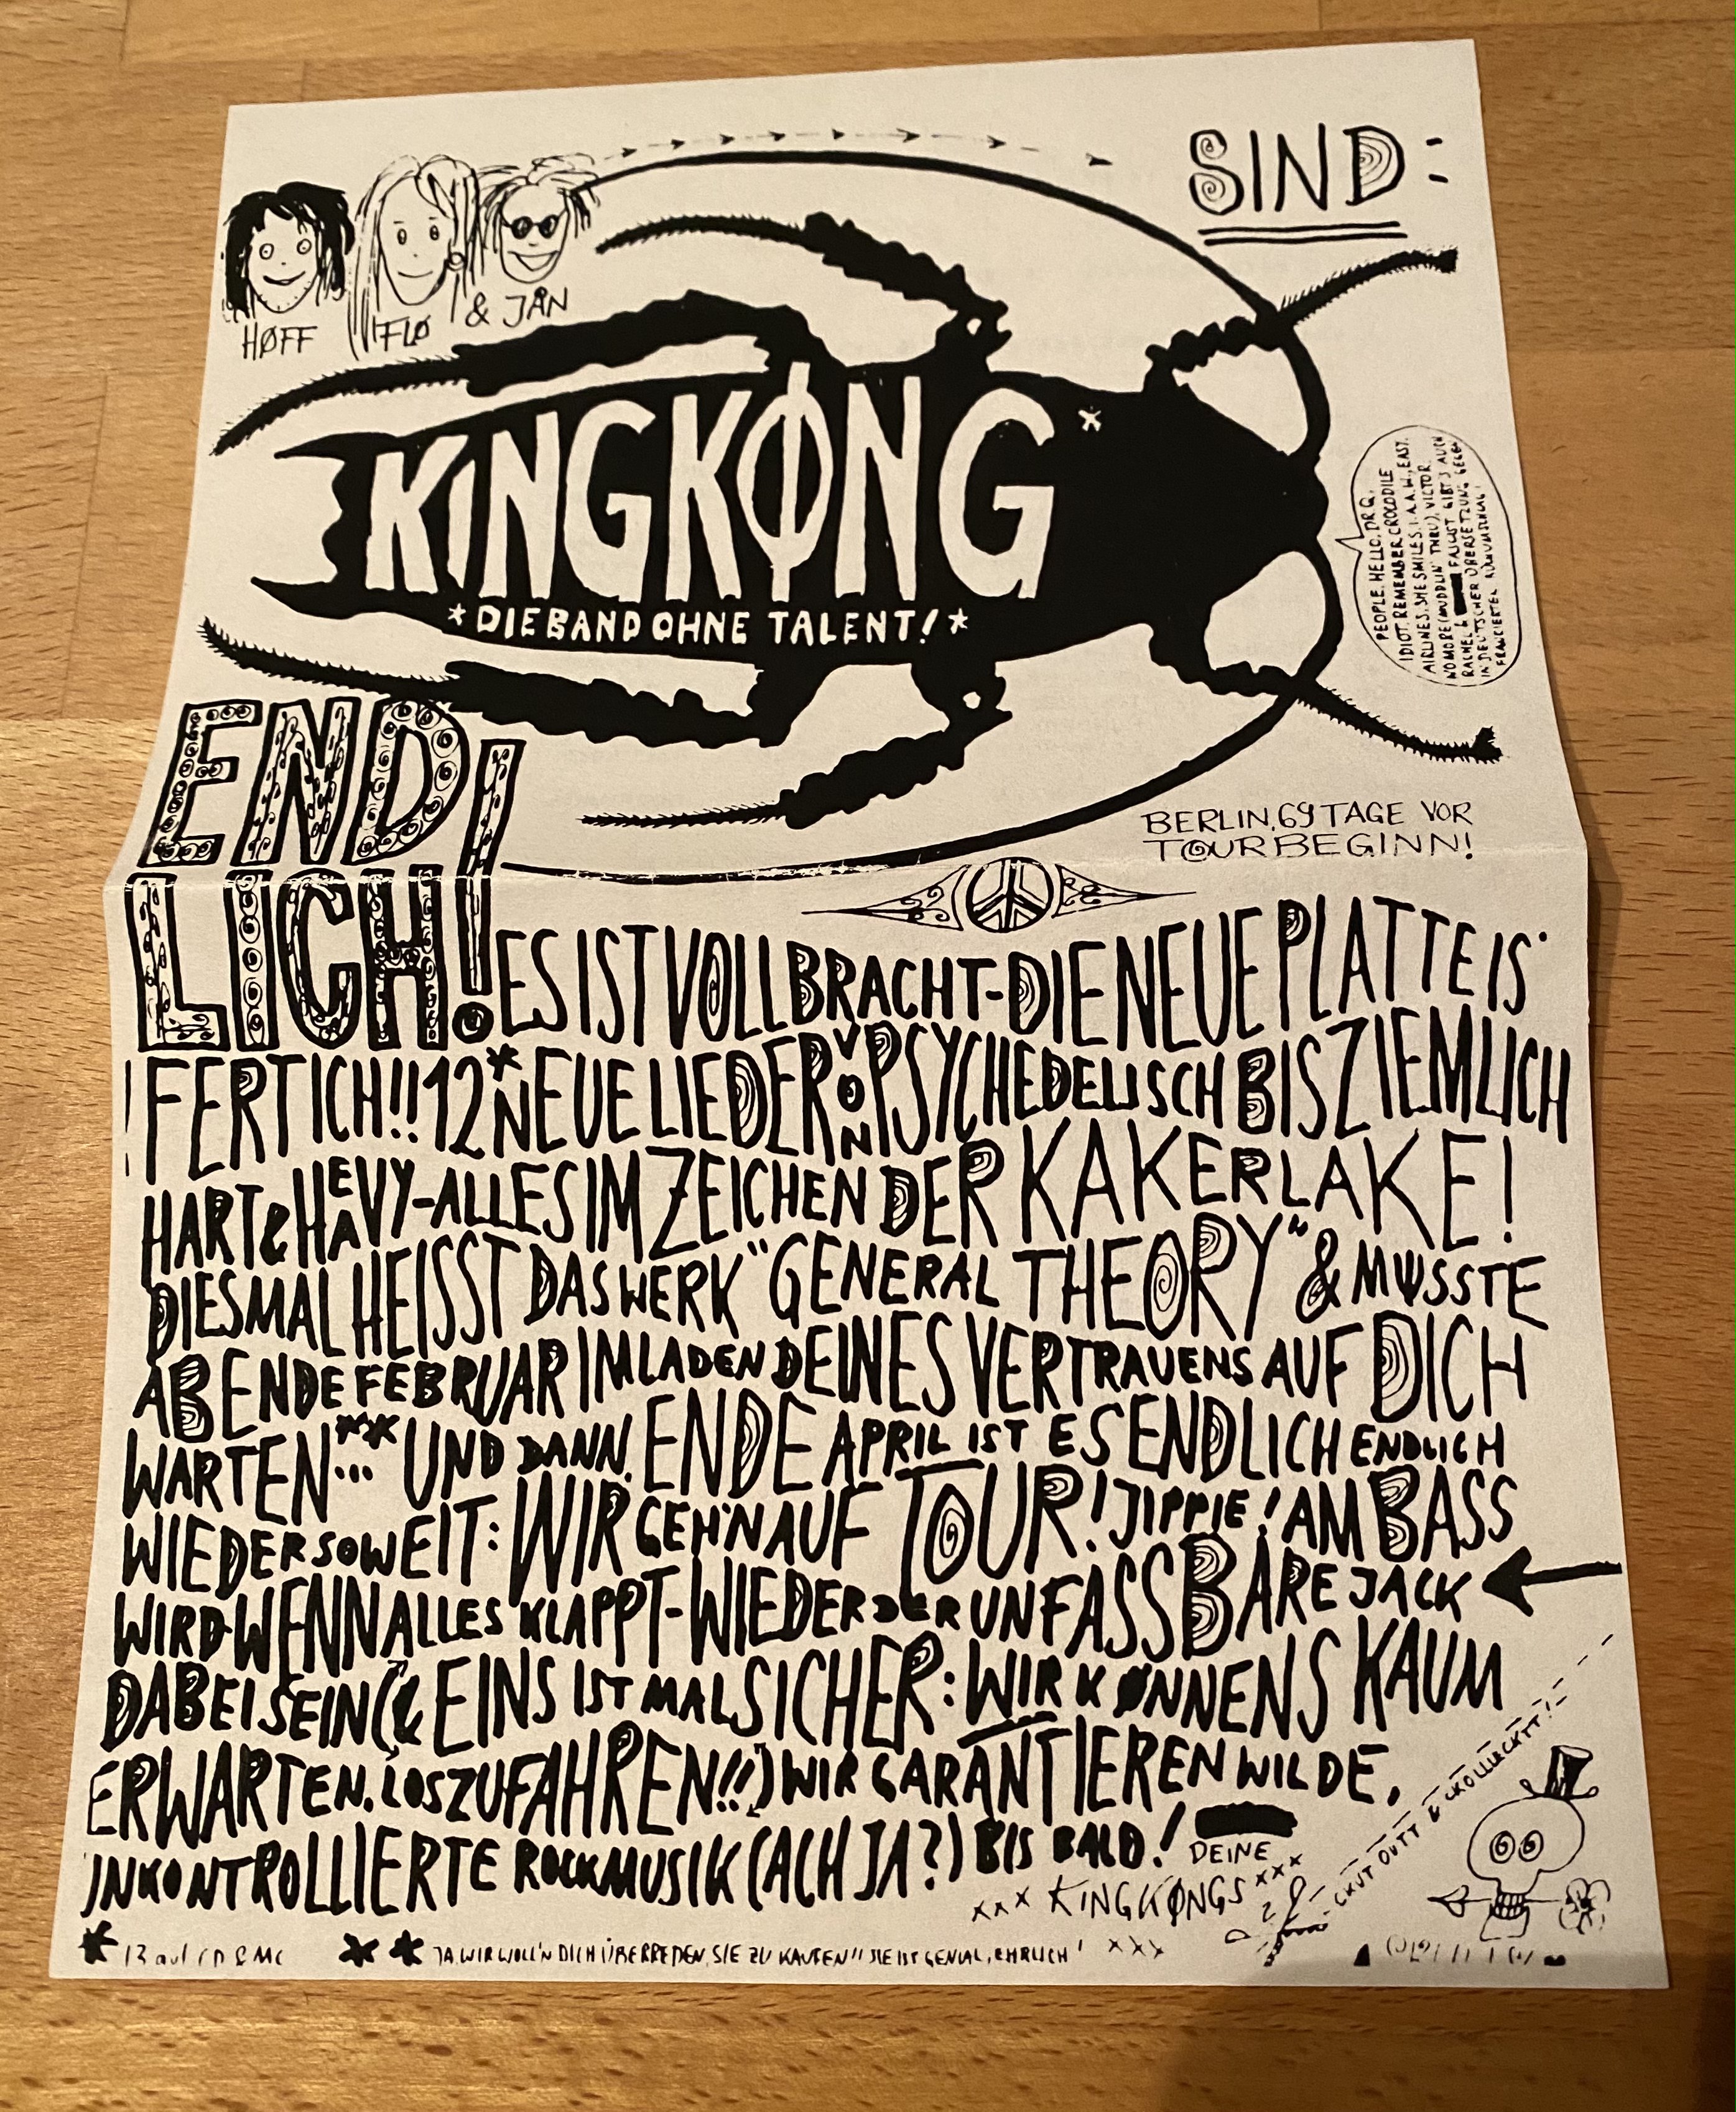 HØFF FLØ & JAN
SIND:
KINGKØNG*
*DIE BAND OHNE TALENT!*
PEOPLE, HELLO, DR.Q,
IDIOT, REMEMBER CROCODILE
AIRLINES, SHE SMILES, I.A.A.W., EAST,
NO MORE (MUDDLIN' THRU), VICTOR,
RACHEL & FAUST GIBT'S AUCH
IN DEUTSCHER ÜBERSETZUNG GEGEN
FRANKIERTEN RÜKUMSCHLAG!
BERLIN, 69 TAGE VOR
TOURBEGINN!
END
LICH! ES IST VOLLBRACHT-DIE NEUE PLATTE IS'
FERTICH!! 12* NEUE LIEDER VON PSYCHEDELISCH BIS ZIEMLICH
HART & HEAVY-ALLES IM ZEICHEN DER KAKERLAKE!
DIESMAL HEISST DAS WERK "GENERAL THEORY" & MÜSSTE
AB ENDE FEBRUAR IM LADEN DEINES VERTRAUENS AUF DICH
WARTEN**... UND DANN, ENDE APRIL IST ES ENDLICH ENDLICH
WIEDER SOWEIT: WIR GEH'N AUF TOUR! JIPPIE! AM BASS
WIRD-WENN ALLES KLAPPT-WIEDER DER UNFASSBARE JACK
DABEI SEIN (& EINS IST MAL SICHER: WIR KØNNENS KAUM
ERWARTEN, LOSZUFAHREN!!) WIR GARANTIEREN WILDE,
UNKONTROLLIERTE ROCKMUSIK (ACH JA?) BIS BALD!
DEINE
xxx KINGKØNGS xxx
CKUT OUTT & CKOLLECKTT!
* 13 auf CD & MC
** JA, WIR WOLL'N DICH ÜBERREDEN, SIE ZU KAUFEN!! SIE IST GENIAL, EHRLICH! xxx